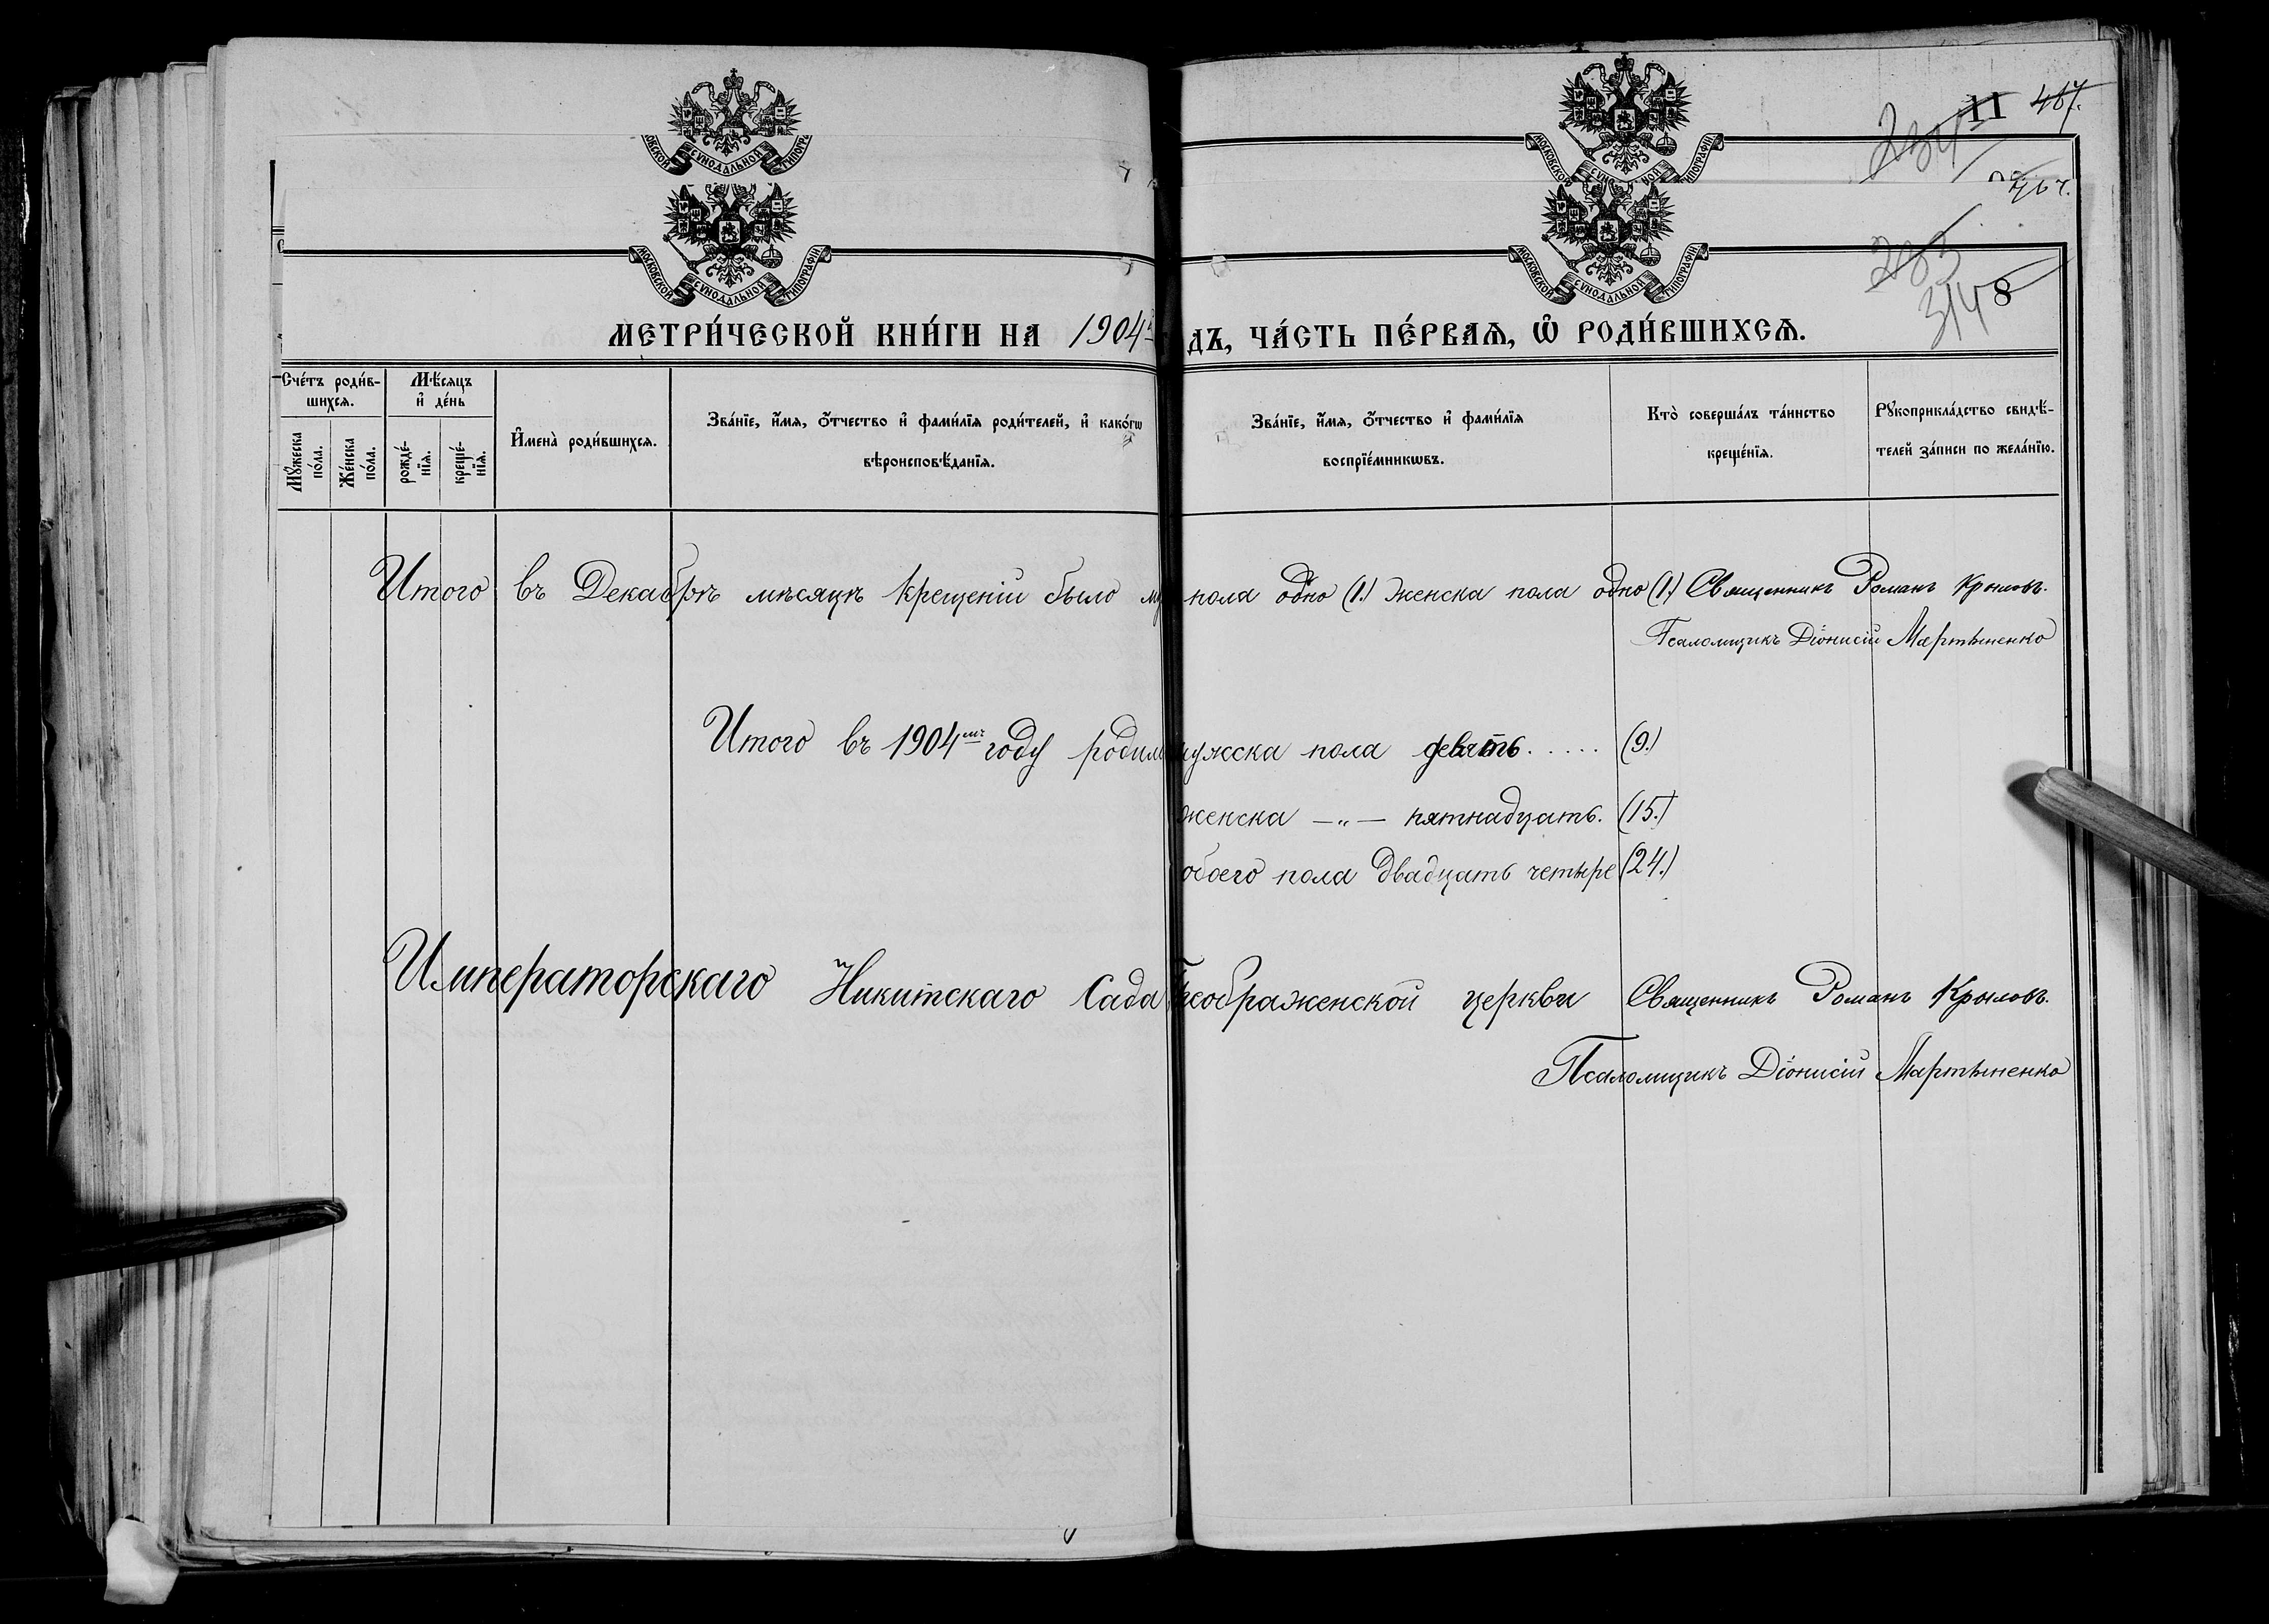 МОСКОВСКОЙ СУНОДАЛЬНОЙ ТИПОГРАФІИ.
11 467.
234
МОСКОВСКОЙ СУНОДАЛЬНОЙ ТИПОГРАФІИ.
283
314 8
МЕТРИ́ЧЕСКОЙ КНИ́ГИ НА 1904 ДЪ, ЧА́СТЬ ПЕ́РВАЯ, Ѡ҆ РОДИ́ВШИХСЯ.
Сче́тъ роди́в-
шихся.
Мꙋ́жеска
по́ла.
Же́нска
по́ла.
Мѣ́сяцъ
и҆ де́нь
рожде́-
нїя.
креще́-
нїя.
И҆мена̀ роди́вшихся.
Зва́нїе, и҆́мя, ѻ҆́тчество и҆ фами́лїя роди́телей, и҆ како́гѡ
вѣроисповѣ́данїя.
Зва́нїе, и҆́мя, ѻ҆́тчество и҆ фами́лїя
воспрїе́мникѡвъ.
Кто̀ соверша́лъ та́инство
креще́нїя.
Рꙋкоприкла́дство свидѣ́-
телей за́писи по жела́нїю.
Итого въ Декабрѣ мѣсяцѣ крещеній было му пола одно (1.) женска пола одно (1.) Священникъ Романъ Крыловъ.
Псаломщикъ Діонисій Мартыненко
Итого въ 1904мъ году родил мужска пола девять. . . . . (9.)
женска —„— пятнадцать. (15.)
обоего пола двадцать четыре (24.)
Императорскаго Никитскаго Сада Преображенской церкви Священникъ Романъ Крыловъ.
Псаломщикъ Діонисій Мартыненко